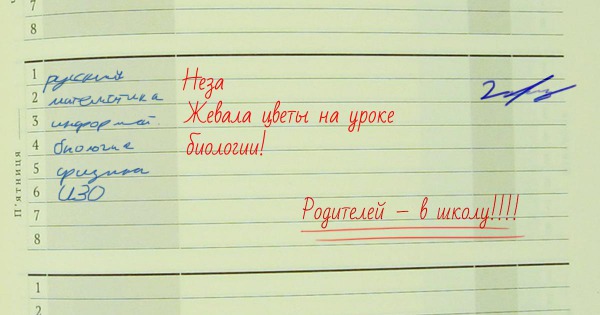 7
8
П'ятниця
1 русский
2 математика
3 информат.
4 биология
5 физика
6 ИЗО
7
8
Неза
Жевала цветы на уроке
биологии!
Родителей – в школу!!!!
1
2